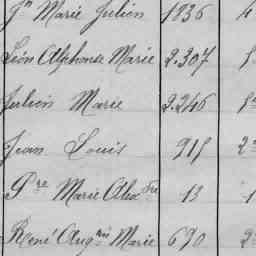 Jn Marie Julien 1836
Léon Alphonse Marie 2.307
Julien Marie 2.246
Jean Louis 915
Pre Marie Alexdre 13 1
René Augtin Marie 690